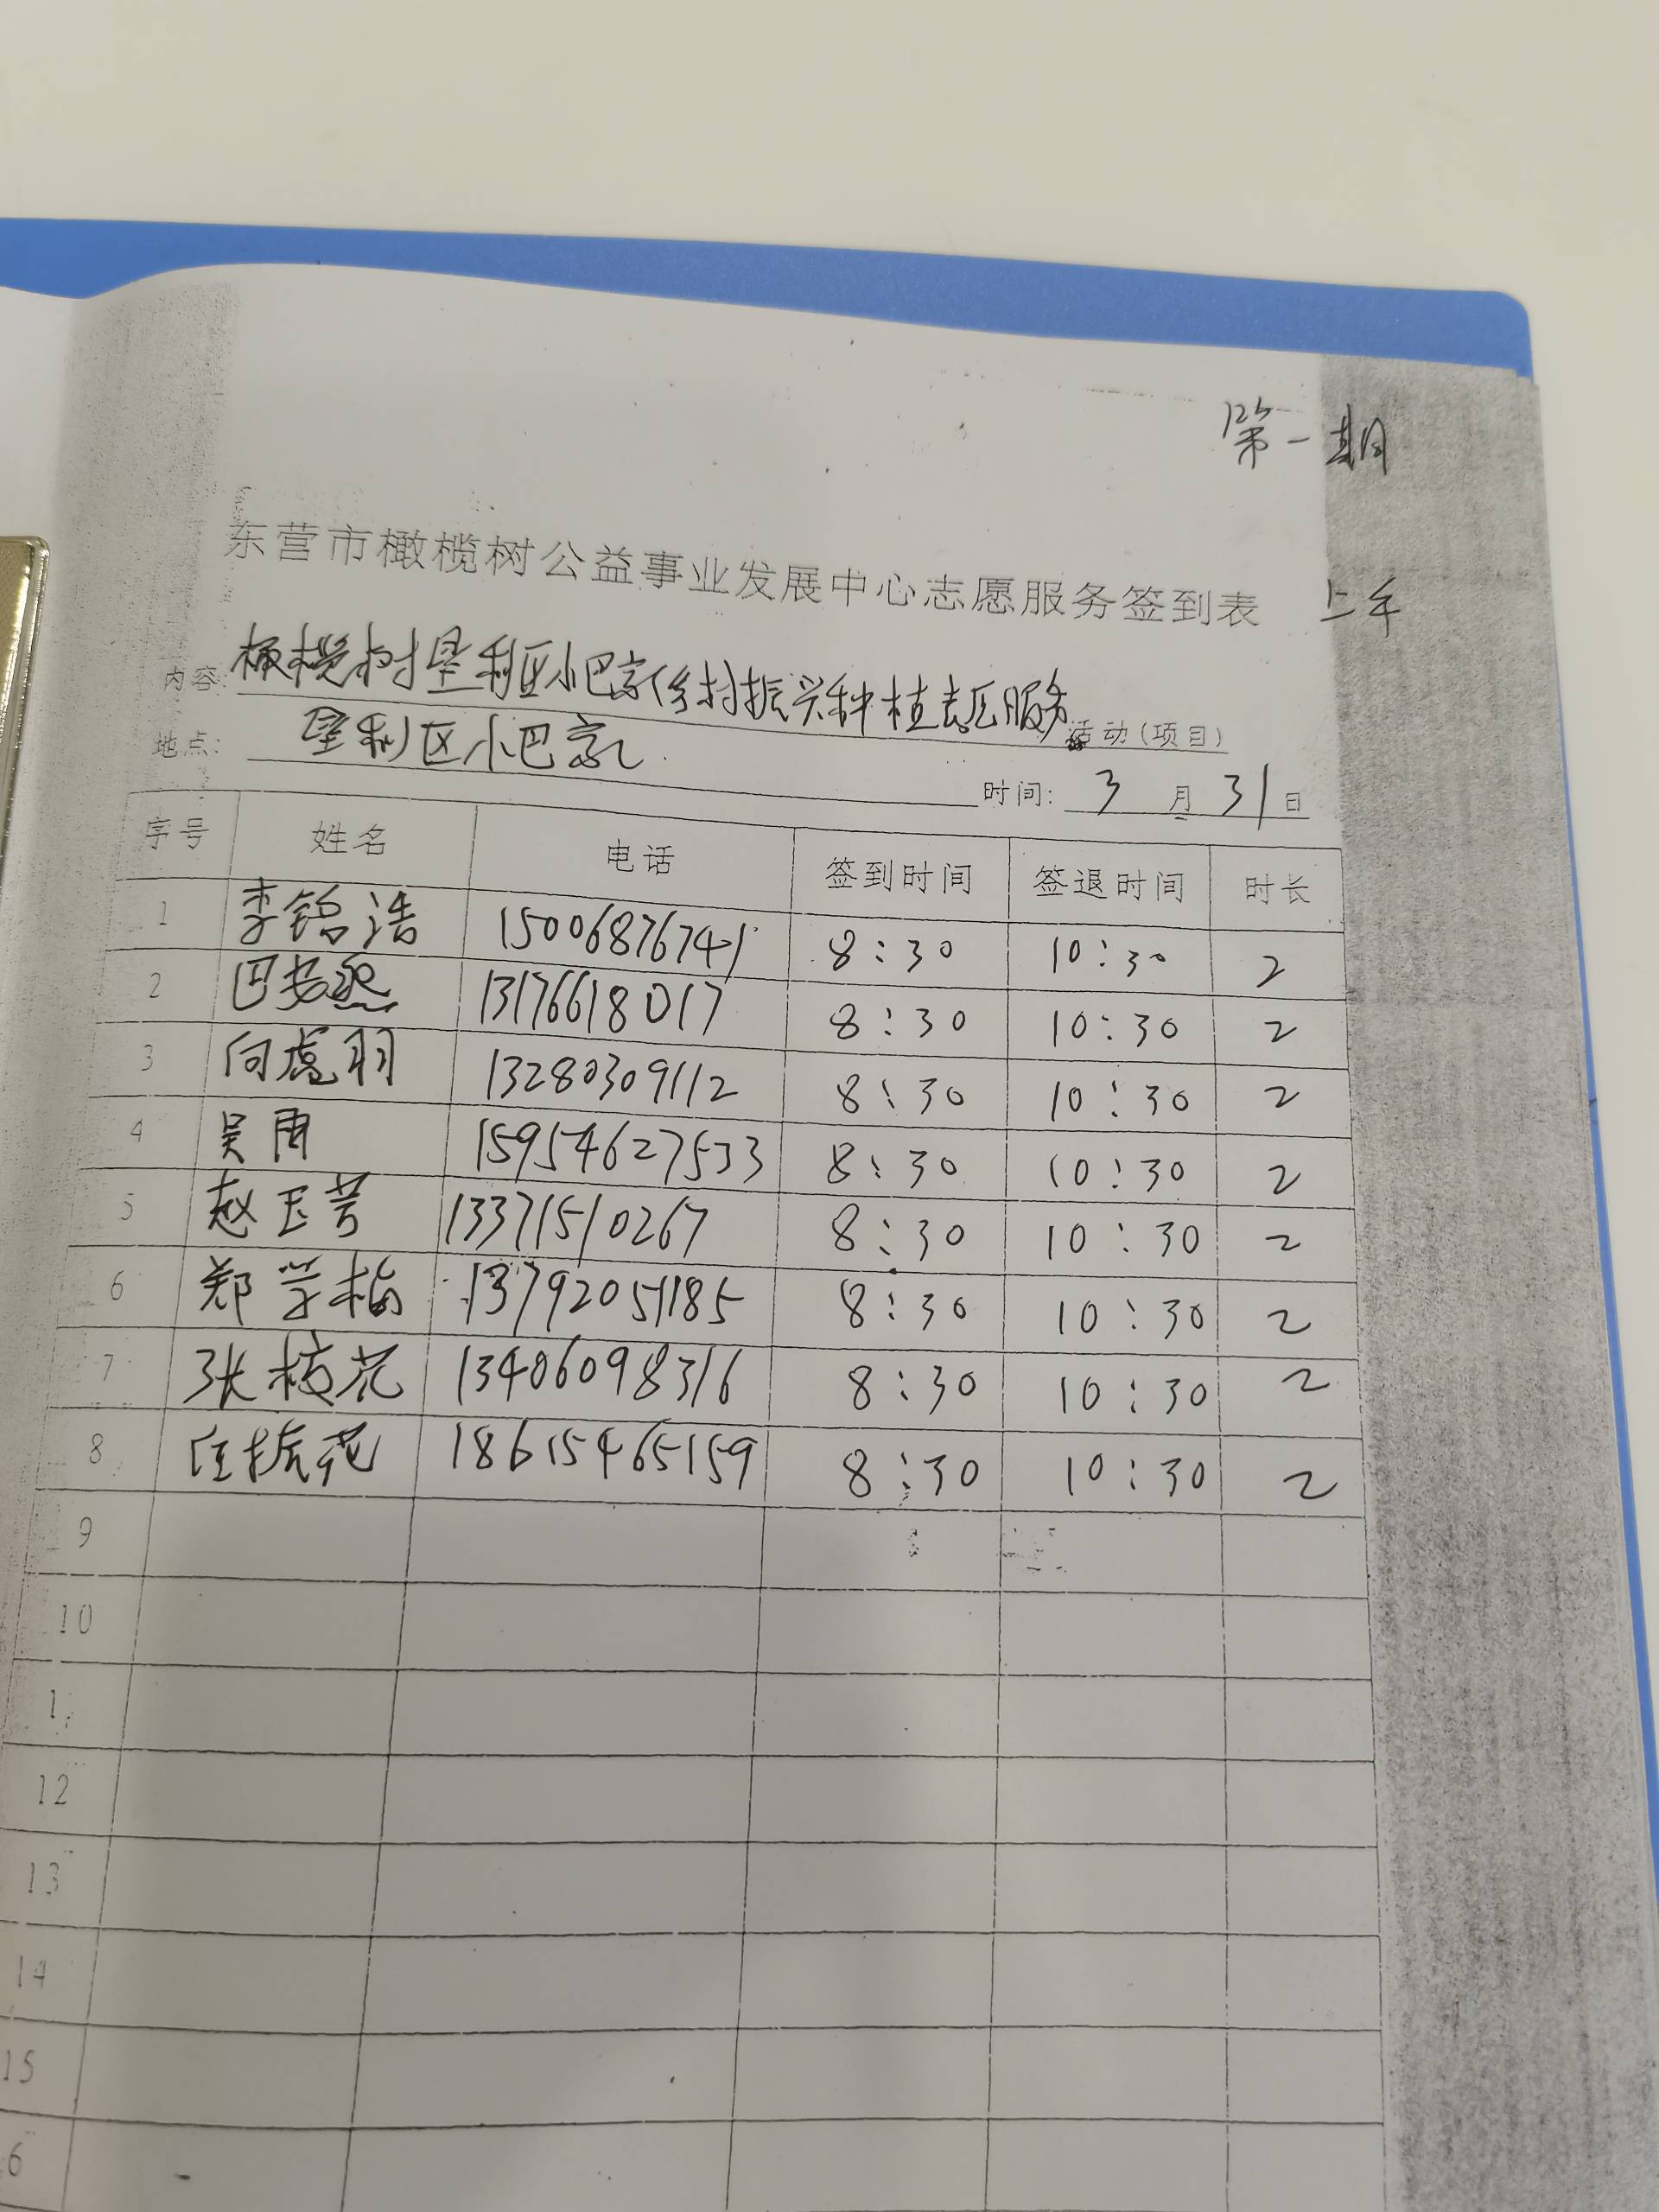 第一期
东营市橄榄树公益事业发展中心志愿服务签到表 上午
内容: 橄榄树垦利区小巴家乡村振兴种植志愿服务 活动(项目)
地点: 垦利区小巴家 时间: 3 月 31 日
序号 姓名 电话 签到时间 签退时间 时长
1 李铭浩 15006876741 8:30 10:30 2
2 巴 13176618017 8:30 10:30 2
3 向虚羽 13280309112 8:30 10:30 2
4 吴雨 15954627533 8:30 10:30 2
5 赵玉芳 13371510267 8:30 10:30 2
6 郑学梅 13792051185 8:30 10:30 2
7 张枝花 13406098316 8:30 10:30 2
8 任振花 18615465159 8:30 10:30 2
9
10
1
12
13
14
15
6